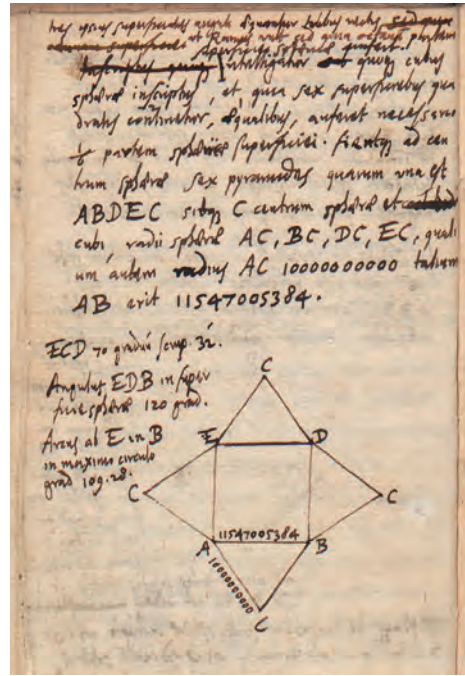 tres ipsius superficietes aequantur totius rectis
ut Ramus vult sed quia octavam partem
superficiei sphaericae aufert.
Intelligatur quoque cubus
sphaerae inscriptus, et, quia sex superficiebus qua
dratis continetur, aequalibus, auferet necessario
1/6 partem sphaericae superficiei. fientque ad cen
trum sphaerae sex pyramides quarum una est
ABDEC sitque C centrum sphaerae et
cubi, radii sphaerae AC, BC, DC, EC, quali
um autem radius AC 10000000000 talium
AB erit 11547005384.
ECD 70 graduū scrup. 32.
Angulus EDB in super
ficie sphaerae 120 grad.
Arcus ab E in B
in maximo circulo
grad 109.28.
C
E
D
C
C
11547005384
A
B
10000000000
C